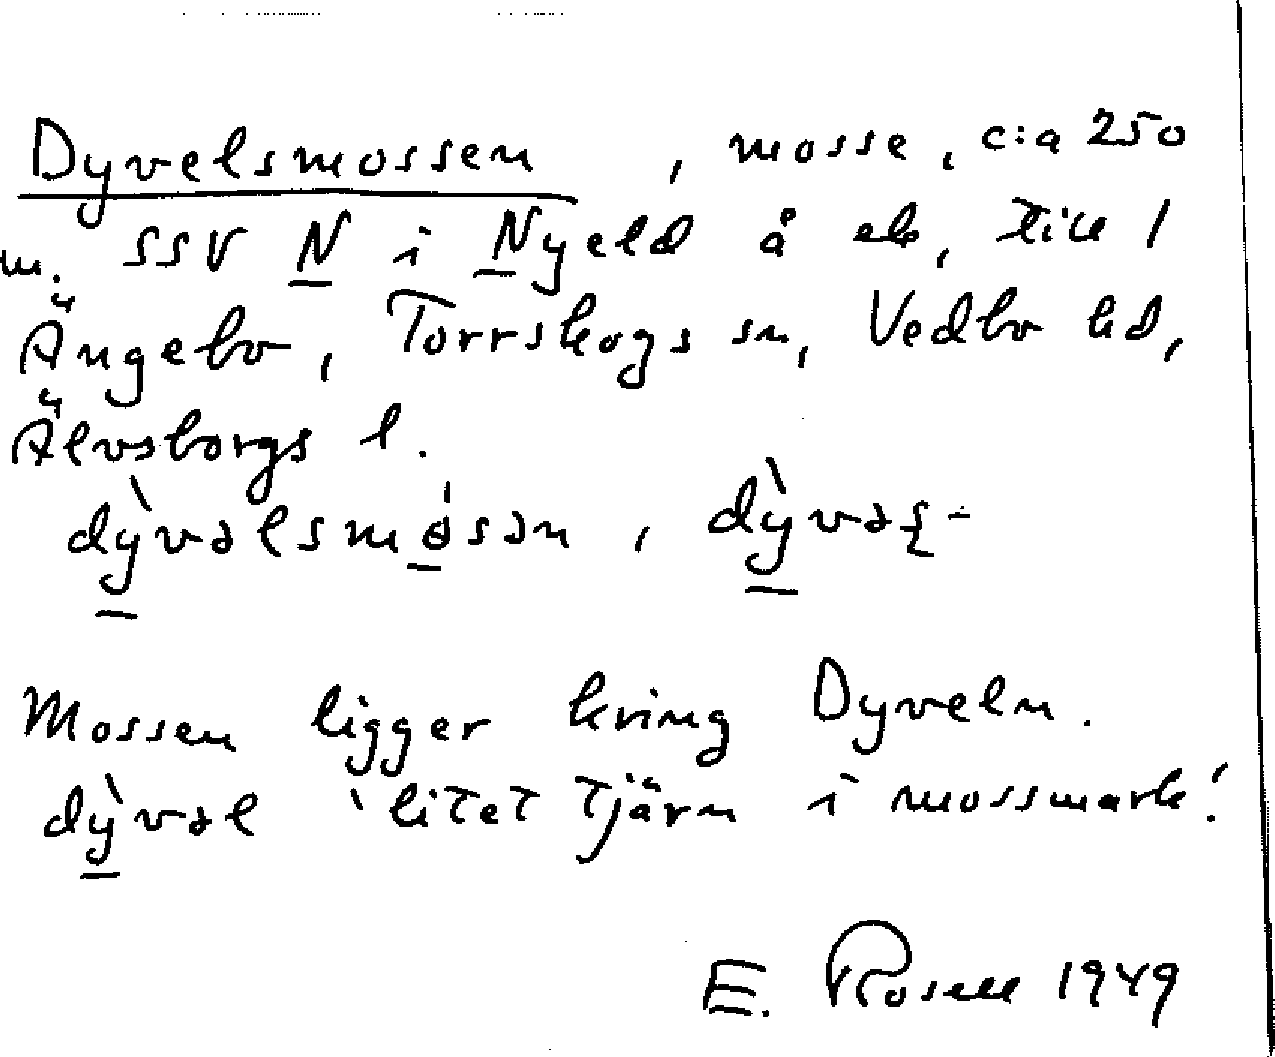 Dyvelsmossen, mosse, c:a 250
m. SSV N i Nyeld å ek, till 1
Ängebo, Torrskogs sn, Vedbo hd,
Älvsborgs l.
dỳvəlsmósən, dỳvəʂ-
Mossen ligger kring Dyveln.
dỳvəl 'litet tjärn i mossmark'.
E. Rosell 1949